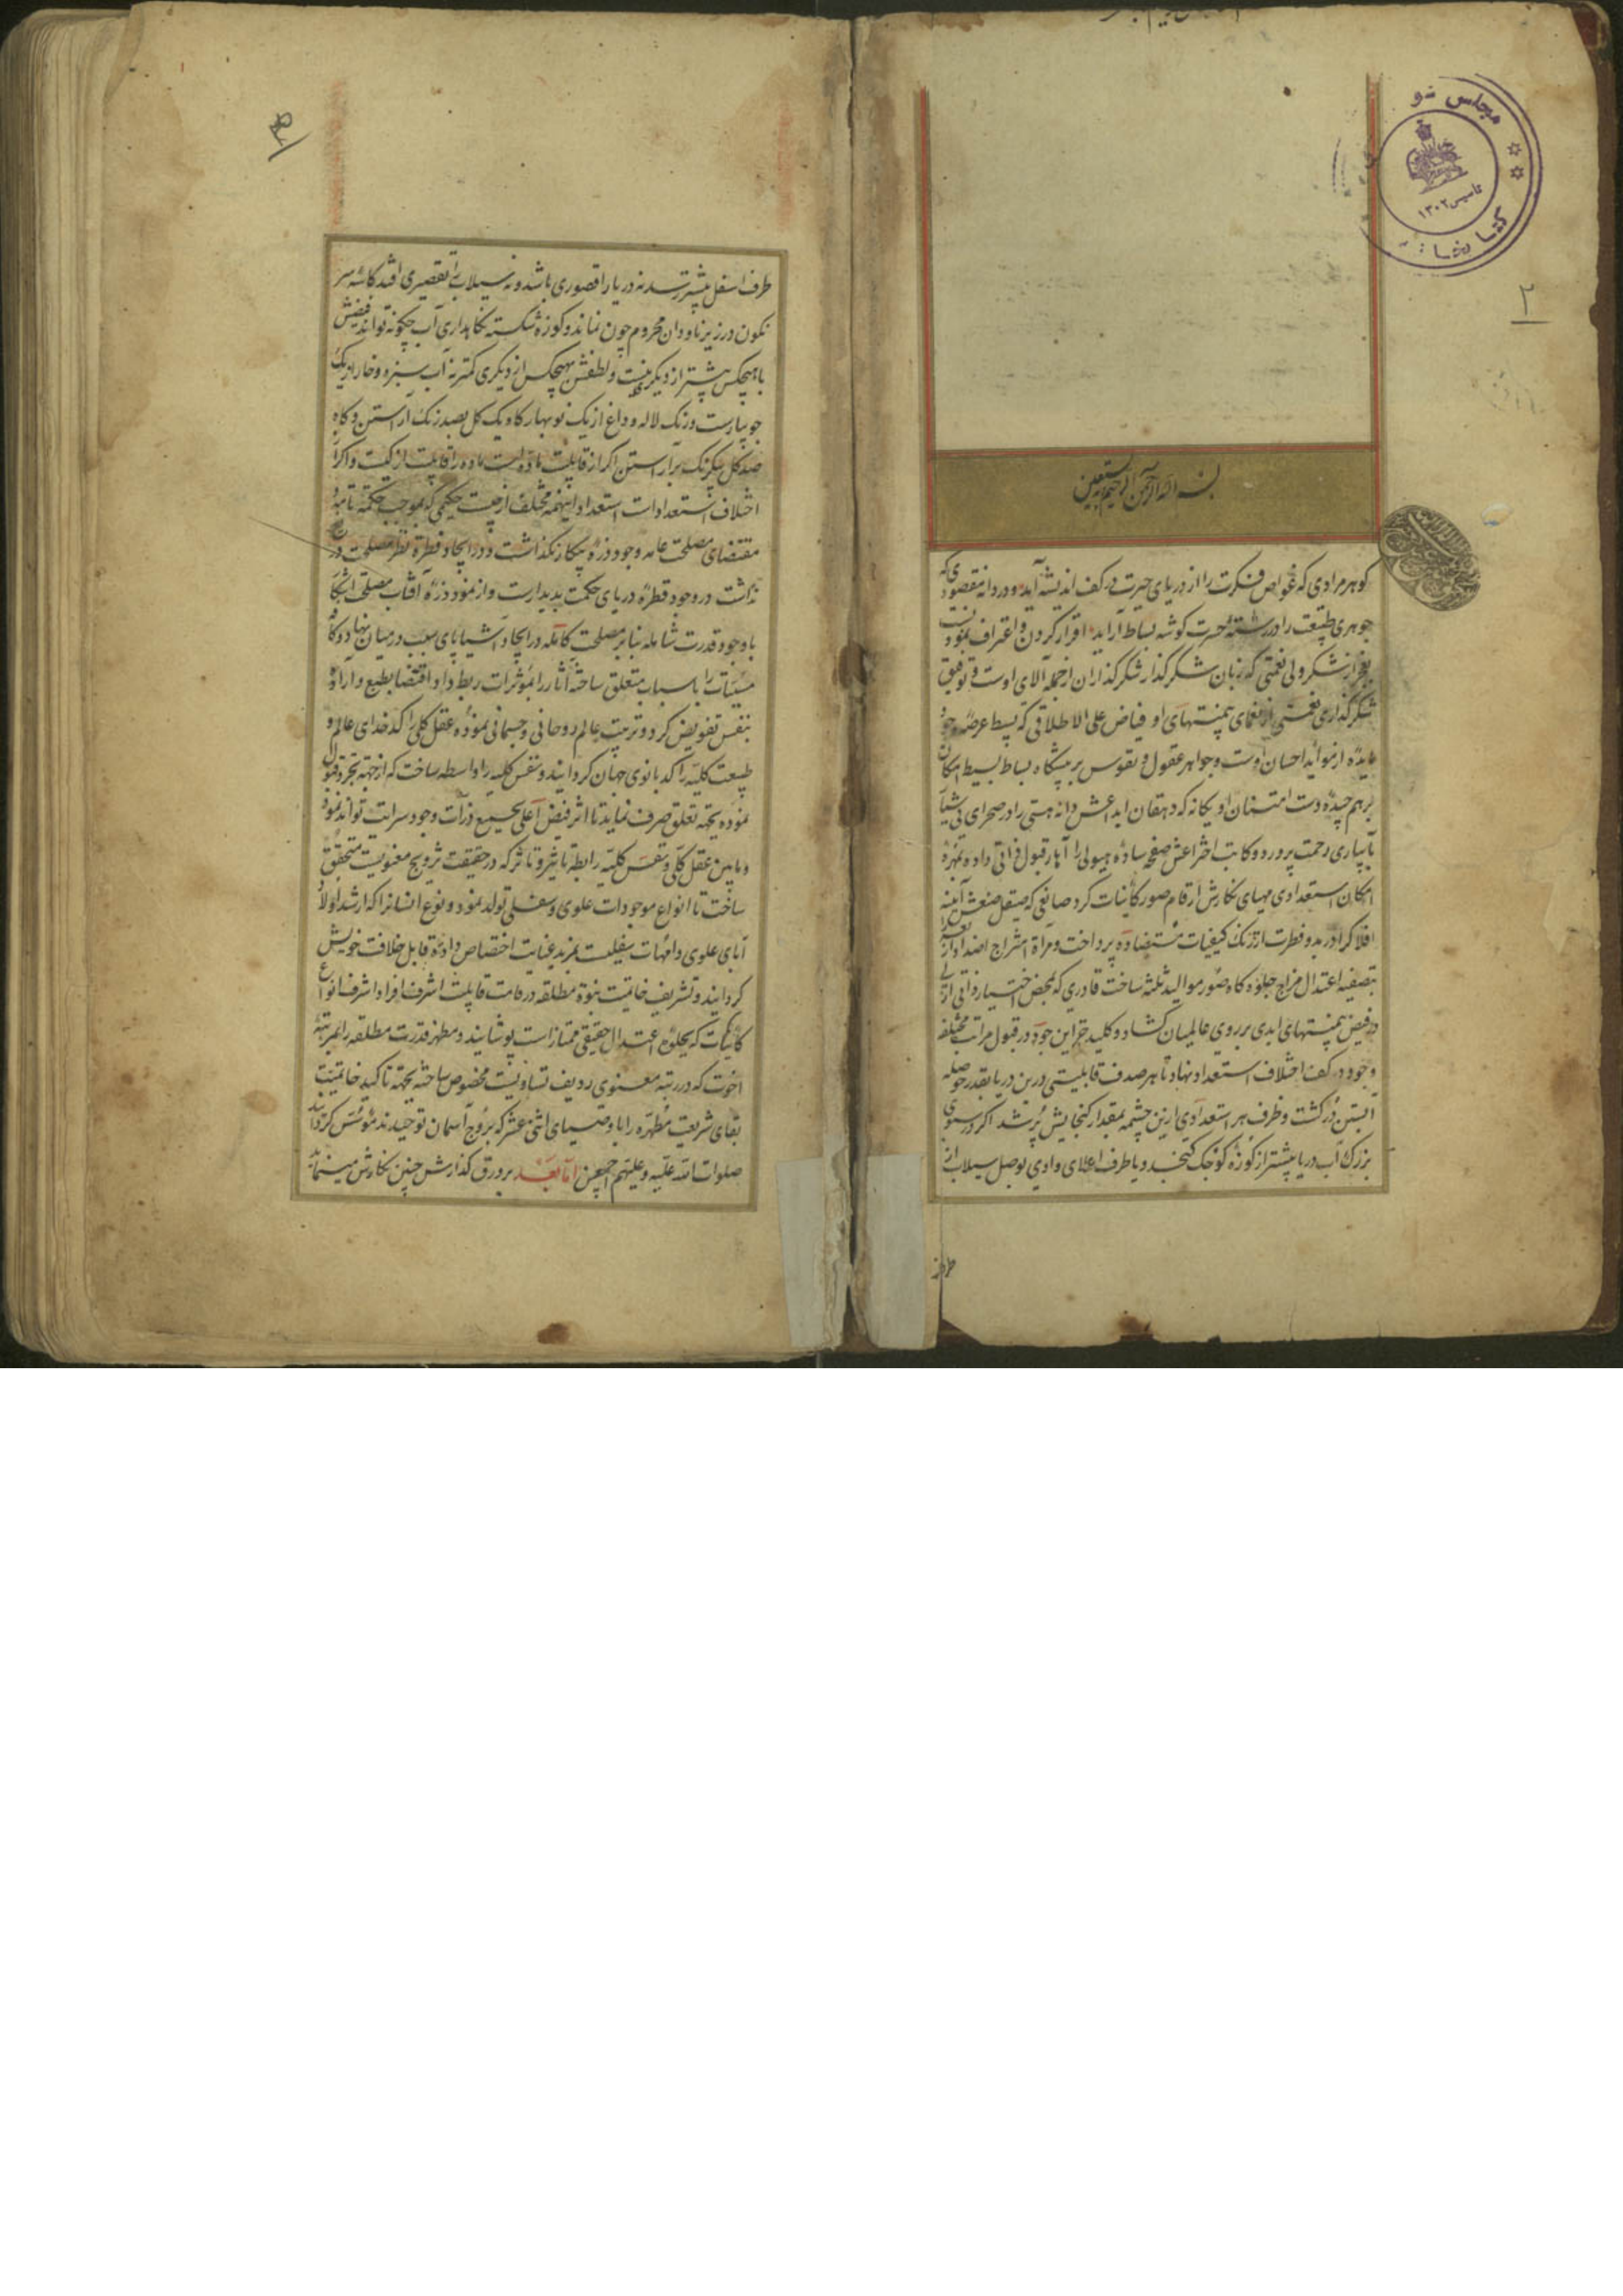 مجلس شو
کتابخانه
تاسیس ۱۳۰۲
۲
بسم الله الرحمن الرحیم نستعین
کوهر مرادی که غواص فکرت را از دریای حیرت در کف اندیشه آید و دردانه مقصودی که
جوهری طبیعت را در رشته حسرت کوشه بساط آراید اقرار کردن و اعتراف نمودنست
بعجز از شکر ولی نعمتی که زبان شکر گذار شکرگذاران از جمله آلای اوست و توفیق
شکرگذاری نعمتی از نعمای بی‌منتهای او فیاض علی الاطلاقی که بسط عرصه وجود
مایده از مواید احسان اوست و جواهر عقول و نفوس بر پیشگاه بساط بسیط امکان
برهم چیده دست امتنان او یکانه که دهقان ابداعش دانه هستی را در صحرای نیستی
بآبیاری رحمت پرورد و کاتب اختراعش صفحه ساده هیولی را آهار قبول ذاتی داده و بمهره
امکان استعدادی مهیای نکارش ارقام صور کاینات کرد صانعی که صیقل صنعش آینه
افلاکرا در بدو فطرت از زنک کیفیات متضاده پرداخت و مرآة امتزاج اضداد را
بتصفیه اعتدال مزاج جلوه کاه صور موالید ثلثه ساخت قادری که بمحض اختیار ذاتی ازلی
در فیض بی‌منتهای ابدی بر روی عالمیان کشاد و کلید خزاین جود در قبول مراتب مختلفه
وجود در کف اختلاف استعداد نهاد تا هر صدف قابلیتی درین دریا بقدر حوصله
آبستن در کشت و ظرف هر استعدادی ازین چشمه بمقدار کنجایش پر شد اکر در سبوی
بزرک آب دریا بیشتر از کوزه کوچک کنجد و یا طرف اعلای وادی بوصل سیلاب از
طرف
۳
طرف اسفل بیشتر رسد نه دریا را قصوری باشد و نه سیلاب را تقصیری افتد کاسه سر
نکون در زیر ناودان محروم چون نماند و کوزه شکسته نکاهداری آب چکونه تواند فیضش
با هیچکس بیشتر از دیکری نیست و لطفش بهیچکس از دیکری کمتر نه آب سبزه و خار از یک
جویبارست و رنک لاله و داغ از یک نوبهار کاه یک کل بصد رنک آراستن و کاه
صد کل بیکرنک برآراستن اکر از قابلیت ماده است ماده را قابلیت از کیست و اکر از
اختلاف استعدادات استعداد اینهمه مختلف از چیست حکیمی که بموجب حکمة تامه و
مقتضای مصلحت عامه وجود ذره بیکار نکذاشت و در ایجاد قطرة نظر مصلحت دریغ
نداشت در وجود قطره دریای حکمت پدیدارست و از نمود ذره آفتاب مصلحت آشکار
با وجود قدرت شامله بنابر مصلحت کامله در ایجاد اشیا پای سبب در میان نهاد و کاه
مسببات را باسباب متعلق ساخته آثار را بمؤثرات ربط داد و اقتضا بطبع و اراده
بنفس تفویض کرد و ترتیب عالم روحانی و جسمانی نموده عقل کلی را کدخدای عالم و
طبیعت کلیه را کدبانوی جهان کردانید و نفس کلیه را واسطه ساخت که از جهة تجرد قبول
نموده بجهة تعلق صرف نماید تا اثر فیض اعلی بجمیع ذرات وجود سرایت تواند نمود
و ما بین عقل کلی و نفس کلیه رابطه تاثیر و تاثر که در حقیقت تزویج معنویست متحقق
ساخت تا انواع موجودات علوی و سفلی تولد نمود و نوع انسانرا که ارشد اولاد
آبای علوی و امهات سفلیست بمزید عنایت اختصاص داده قابل خلافت خویش
کردانید و تشریف خاتمیت نبوة مطلقه در قامت قابلیت اشرف افراد اشرف انواع
کاینات که بحلوه اعتدال حقیقی ممتازست پوشانید و مظهر قدرت مطلقه را بمرتبه
اخوت که در رتبه معنوی ردیف تساویست مخصوص ساخته بجهة تاکید خاتمیت
بقای شریعت مطهره را باوصیای اثنی عشر که بروج آسمان توحیدند مؤسس کردانید
صلوات الله علیه و علیهم اجمعین اما بعد بر ورق کذارش چنین نکارش مینماید